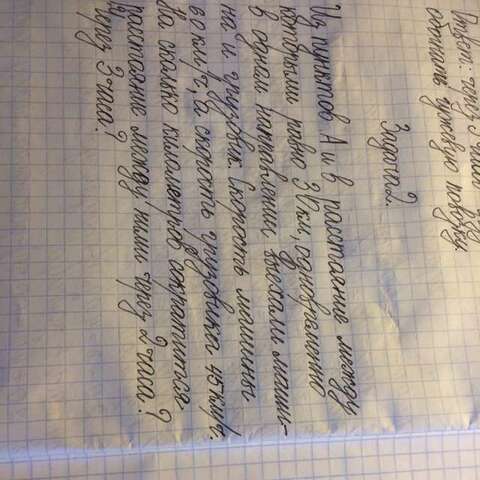 Ответ: через
обогнать гужевую повозку.
Задача 2.
Из пунктов А и В расстаение между
которыми равно 30км, одновременно
в одном направлении выехали маши-
на и грузовик. Скорость машины
60 км/ч, а скорость грузовика 45км/ч.
На сколько километров сократится
расстояние между ними через 2 часа?
через 3 часа?